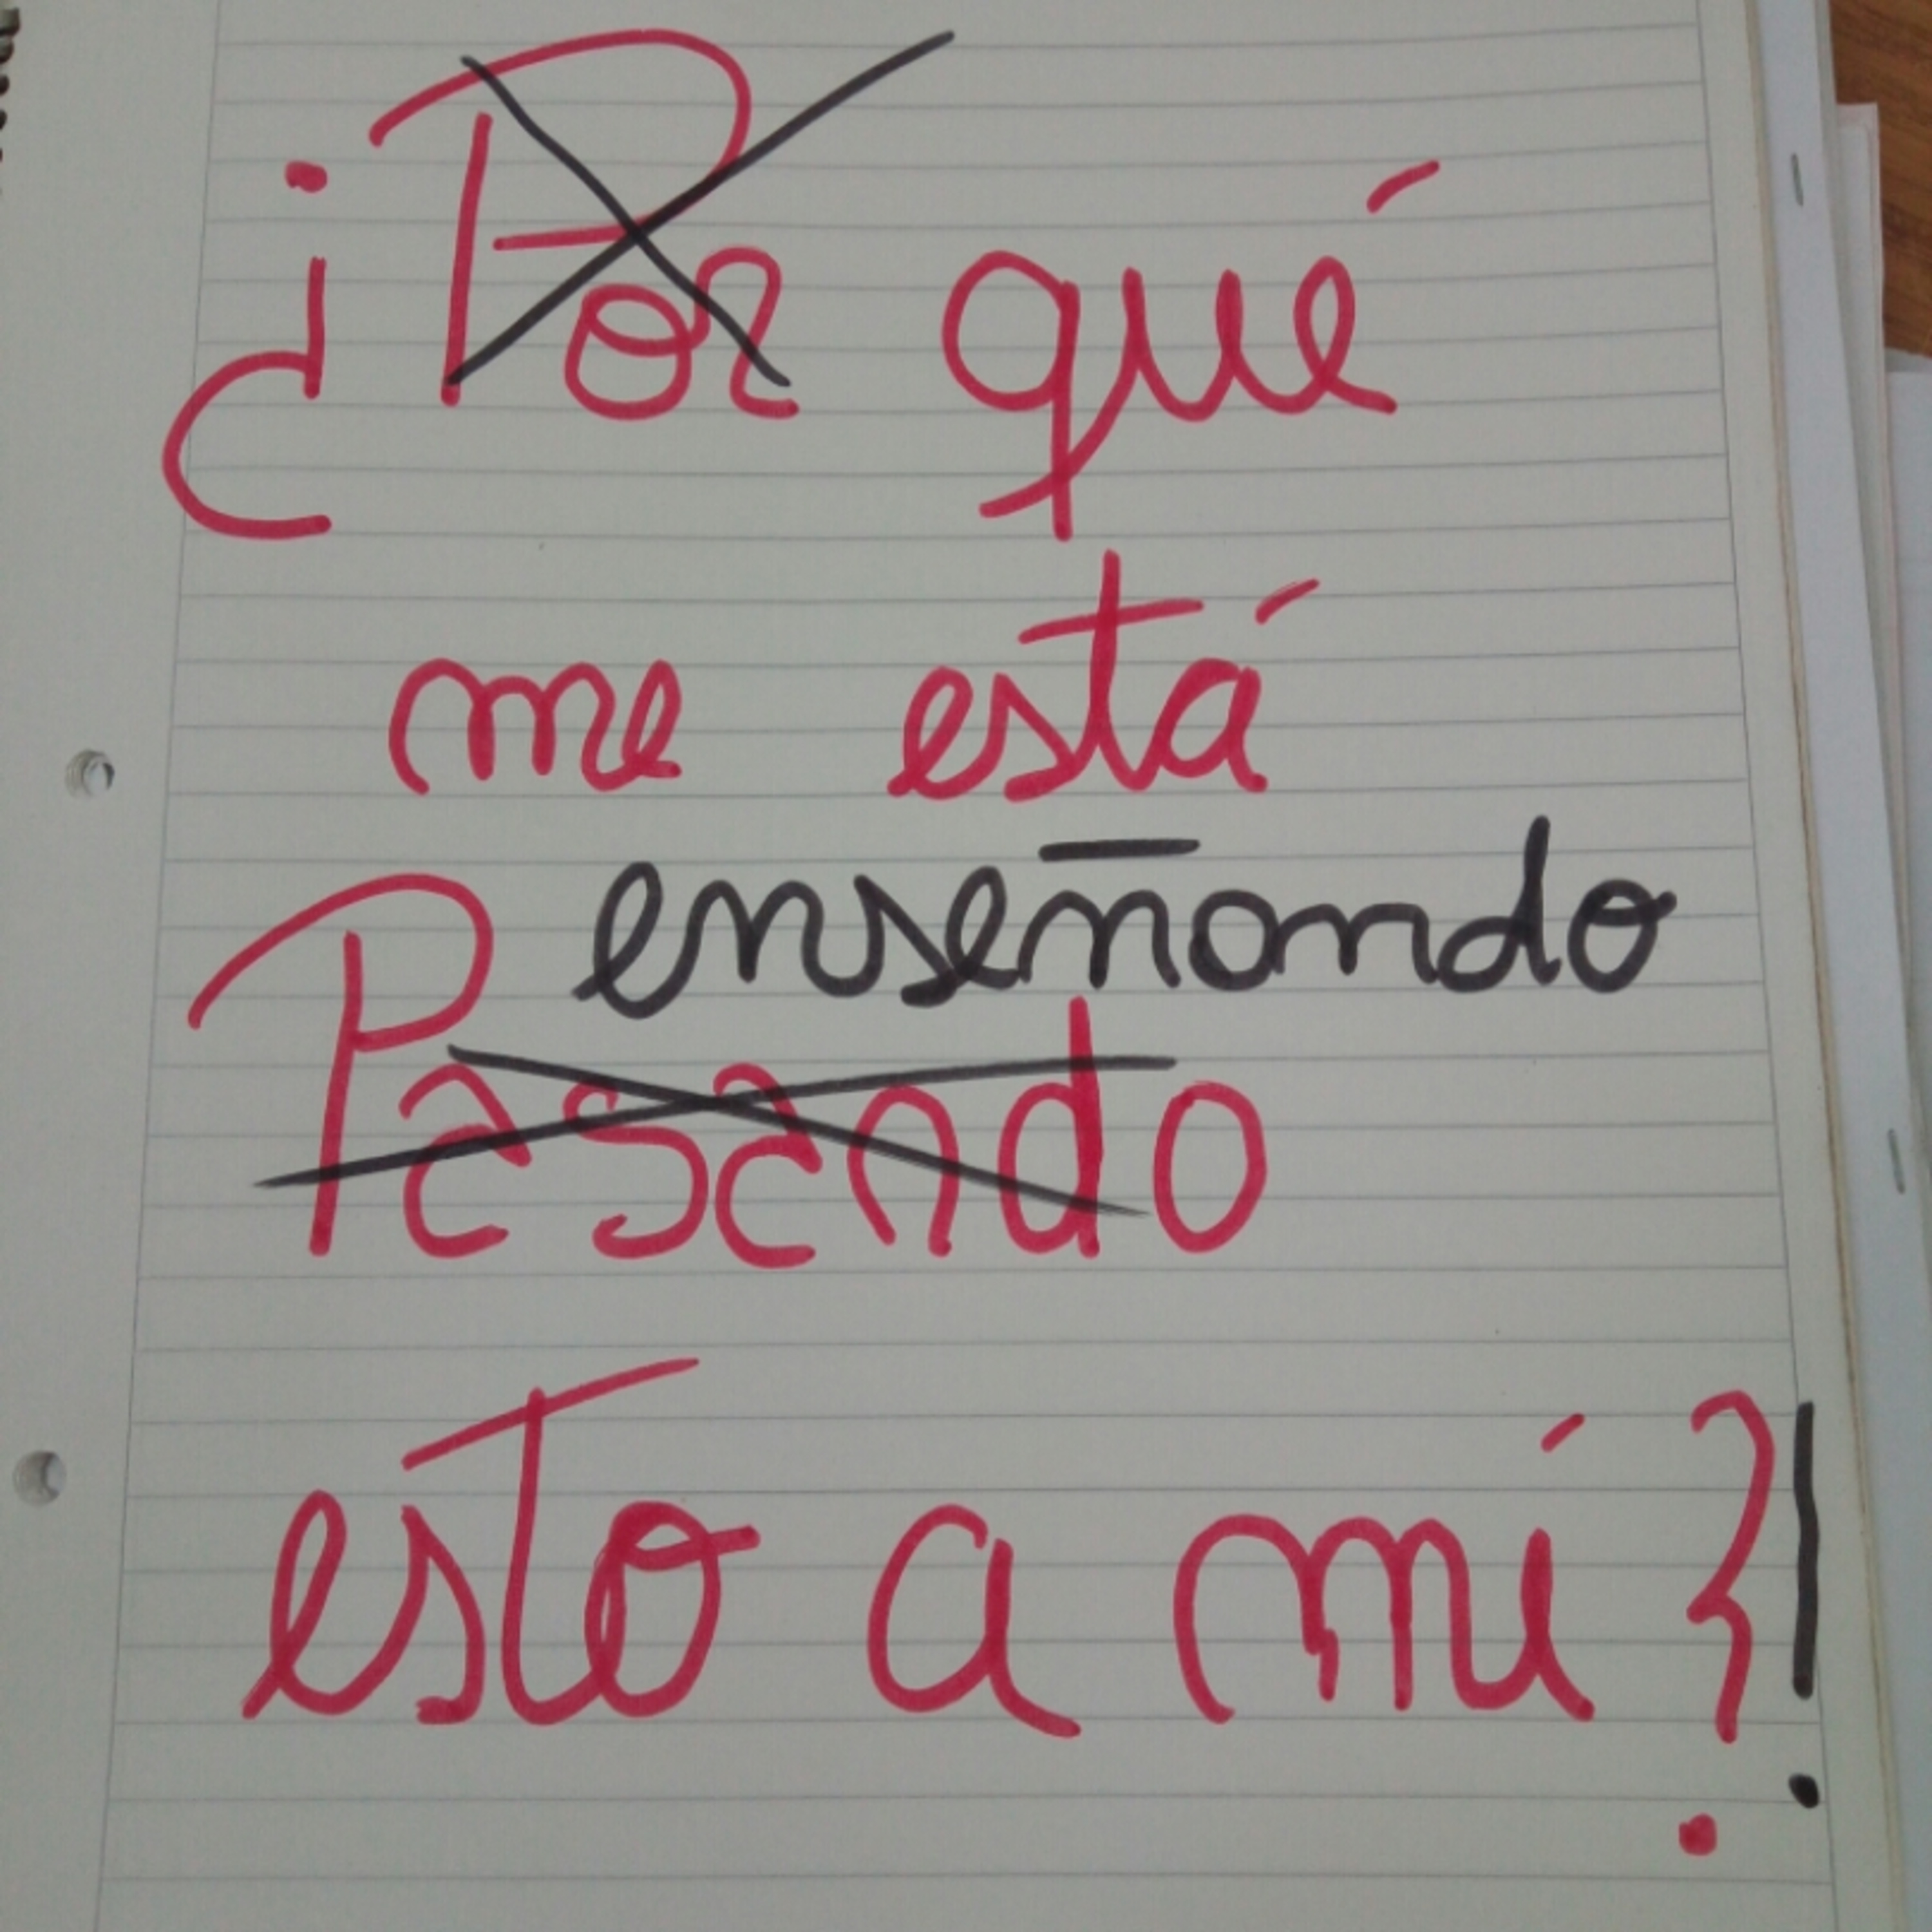 ¿Por qué
me está
enseñando
Pasando
esto a mí?!